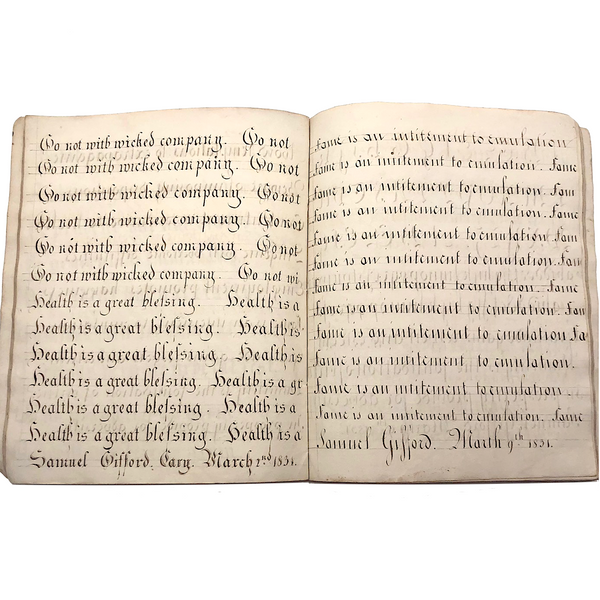 Go not with wicked company. Go not
Go not with wicked company. Go not
Go not with wicked company. Go not
Go not with wicked company. Go not
Go not with wicked company. Go not
Go not with wicked company. Go not wi
Health is a great bleſsing. Health is a
Health is a great bleſsing. Health is
Health is a great bleſsing. Health is
Health is a great bleſsing. Health is a gr
Health is a great bleſsing. Health is a
Health is a great bleſsing. Health is a
Samuel Gifford. Cary. March 2nd 1831.
Fame is an intitement to emulation
Fame is an intitement to emulation. Fame
Fame is an intitement to emulation. Fam
Fame is an intitement to emulation. Fame
Fame is an intitement to emulation. Fam
Fame is an intitement to emulation. Fam
Fame is an intitement to emulation. Fame
Fame is an intitement to emulation. Fam
Fame is an intitement to emulation Fa
Fame is an intitement to emulation.
Fame is an intitement to emulation.
Fame is an intitement to emulation. Fame
Samuel Gifford. March 9th 1831.